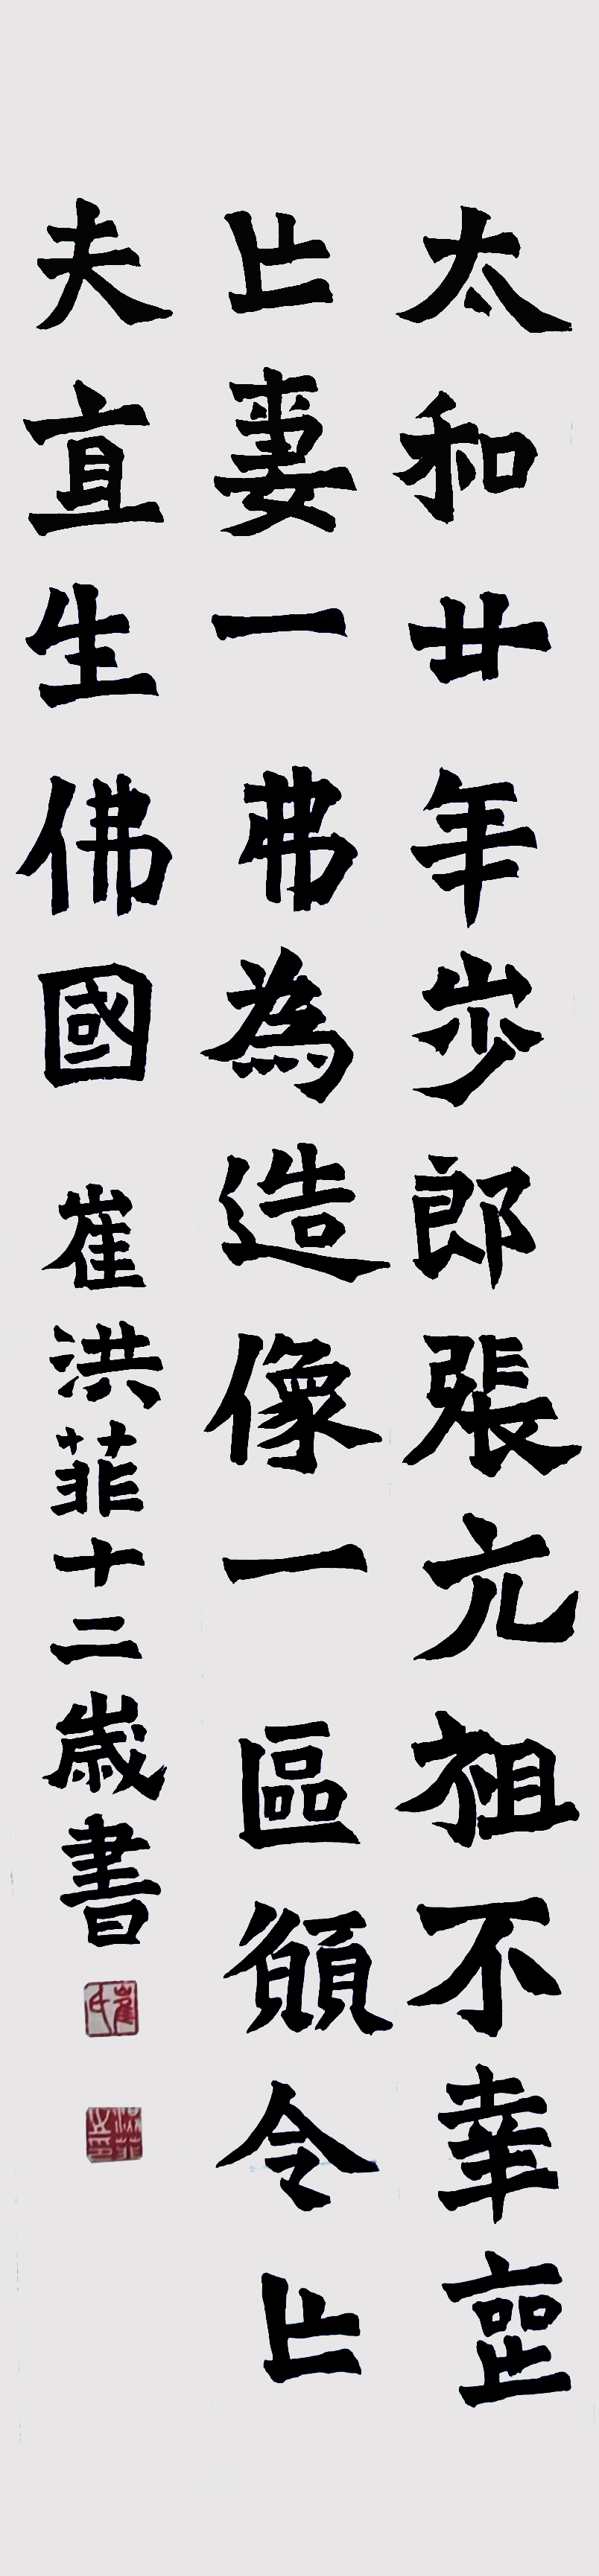 太和廿年步郎張元祖不幸喪
亡妻一弗為造像一區願令亡
夫直生佛國 崔洪菲十二歲書
崔氏
洪菲之印